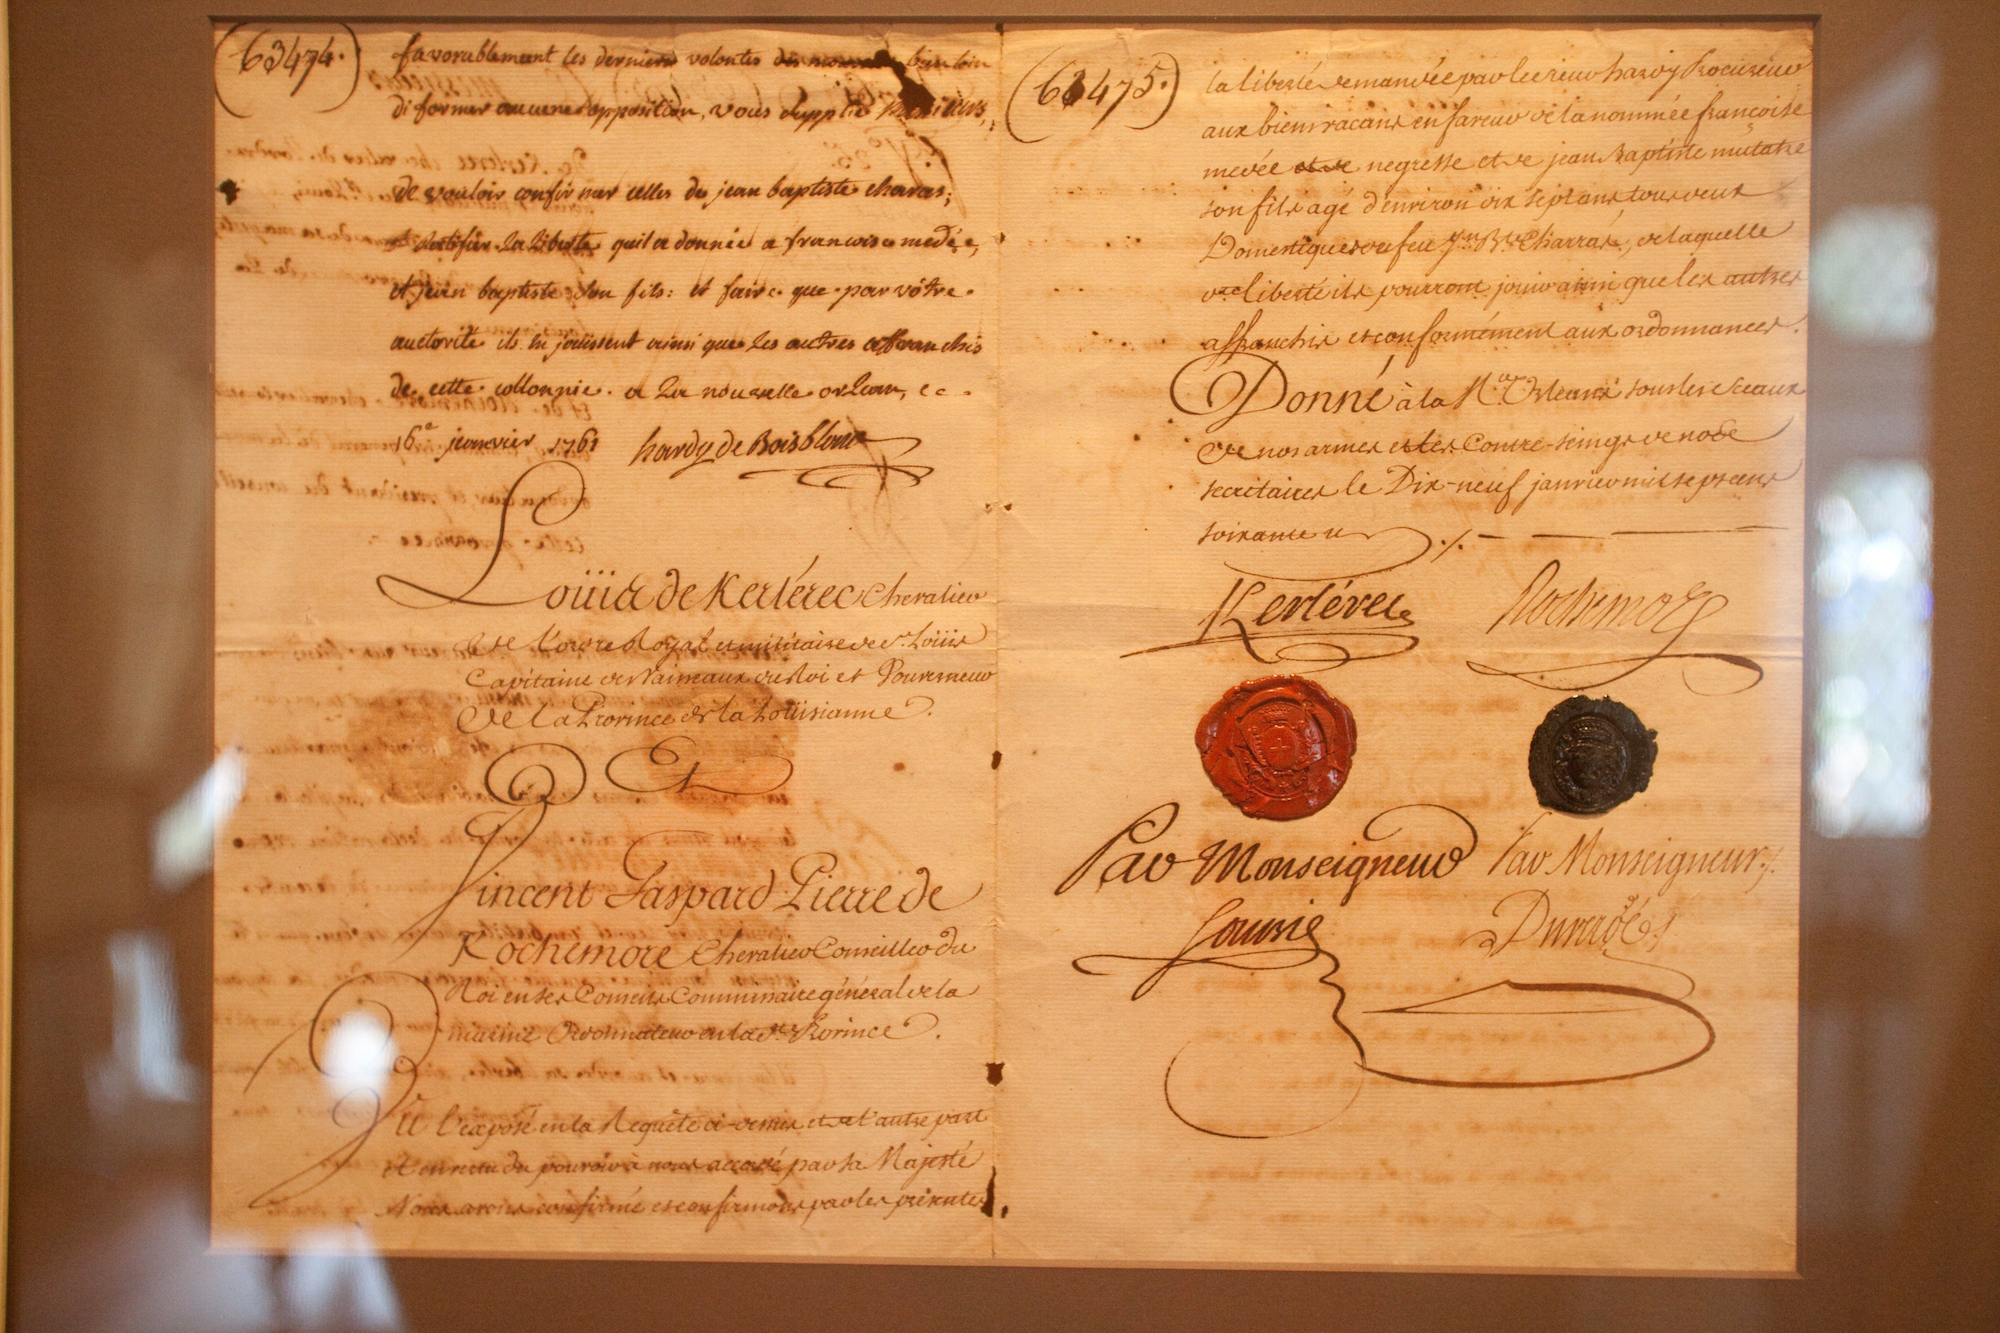 (63474.)
favorablement les dernieres volontes des bien loin
di former aucune opposition, vous supplie Messieurs,
de vouloir confirmer celles de jean baptiste charas;
et Ratifier la liberte quil a donnée a francoise medée,
et jean baptiste son fils: et faire que par vôtre
auctorité ils en joüissent ainsi que les autres affranchis
de cette collonnie. a la nouvelle orlean, ce
16e janvier 1761 hardy de Boisblanc
Loüis de Kerlerec Chevalier
de l'ordre Royal et militaire de St. Loüis
Capitaine des Vaisseaux du Roi et Gouverneur
de la Province de la Loüisianne.
Vincent Gaspard Pierre de
Rochemore Chevalier Conseiller du
Roi en ses Conseils Commissaire général de la
marine Ordonnateur en lad.te Province.
Vû l'exposé en la Requête ci-dessus et de l'autre part
et en vertu du pouvoir à nous accordé par sa Majesté
Nous avons confirmé et confirmons par les présentes
(63475.)
la liberté demandée par le sieur hardy Procureur
aux biens vacans en faveur de la nommée françoise
medée negresse et de jean Baptiste mulatre
son fils agé d'environ dix sept ans tous deux
Domestiques du feu Jn. Bte. Charras, de laquelle
liberté ils pourront jouir ainsi que les autres
affranchis et conformément aux ordonnances.
Donné à la Nlle. Orleans sous les sceaux
de nos armes et les Contre-seings de nos
secretaires le Dix-neuf janvier mil sept cens
soixante un ./.
Kerlérec Rochemore
Par Monseigneur Par Monseigneur ./.